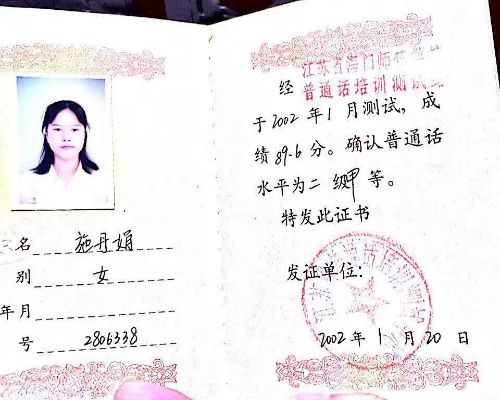 名 施丹娟
别 女
年月
号 2806338
经 江苏省海门师范学校
普通话培训测试站
于2002年1月测试，成
绩89.6分。确认普通话
水平为二级甲等。
特发此证书
发证单位：
2002年1月20日